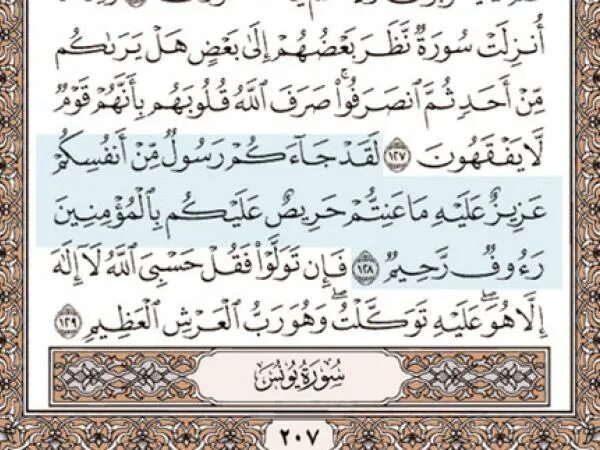 أُنزِلَتْ سُورَةٌ نَّظَرَ بَعْضُهُمْ إِلَىٰ بَعْضٍ هَلْ يَرَىٰكُم
مِّنْ أَحَدٍ ثُمَّ ٱنصَرَفُوا۟ ۚ صَرَفَ ٱللَّهُ قُلُوبَهُم بِأَنَّهُمْ قَوْمٌ
لَّا يَفْقَهُونَ ١٢٧ لَقَدْ جَآءَكُمْ رَسُولٌ مِّنْ أَنفُسِكُمْ
عَزِيزٌ عَلَيْهِ مَا عَنِتُّمْ حَرِيصٌ عَلَيْكُم بِٱلْمُؤْمِنِينَ
رَءُوفٌ رَّحِيمٌ ١٢٨ فَإِن تَوَلَّوْا۟ فَقُلْ حَسْبِىَ ٱللَّهُ لَآ إِلَٰهَ
إِلَّا هُوَ ۖ عَلَيْهِ تَوَكَّلْتُ ۖ وَهُوَ رَبُّ ٱلْعَرْشِ ٱلْعَظِيمِ ١٢٩
سُورَةُ يُونُسَ
٢٠٧